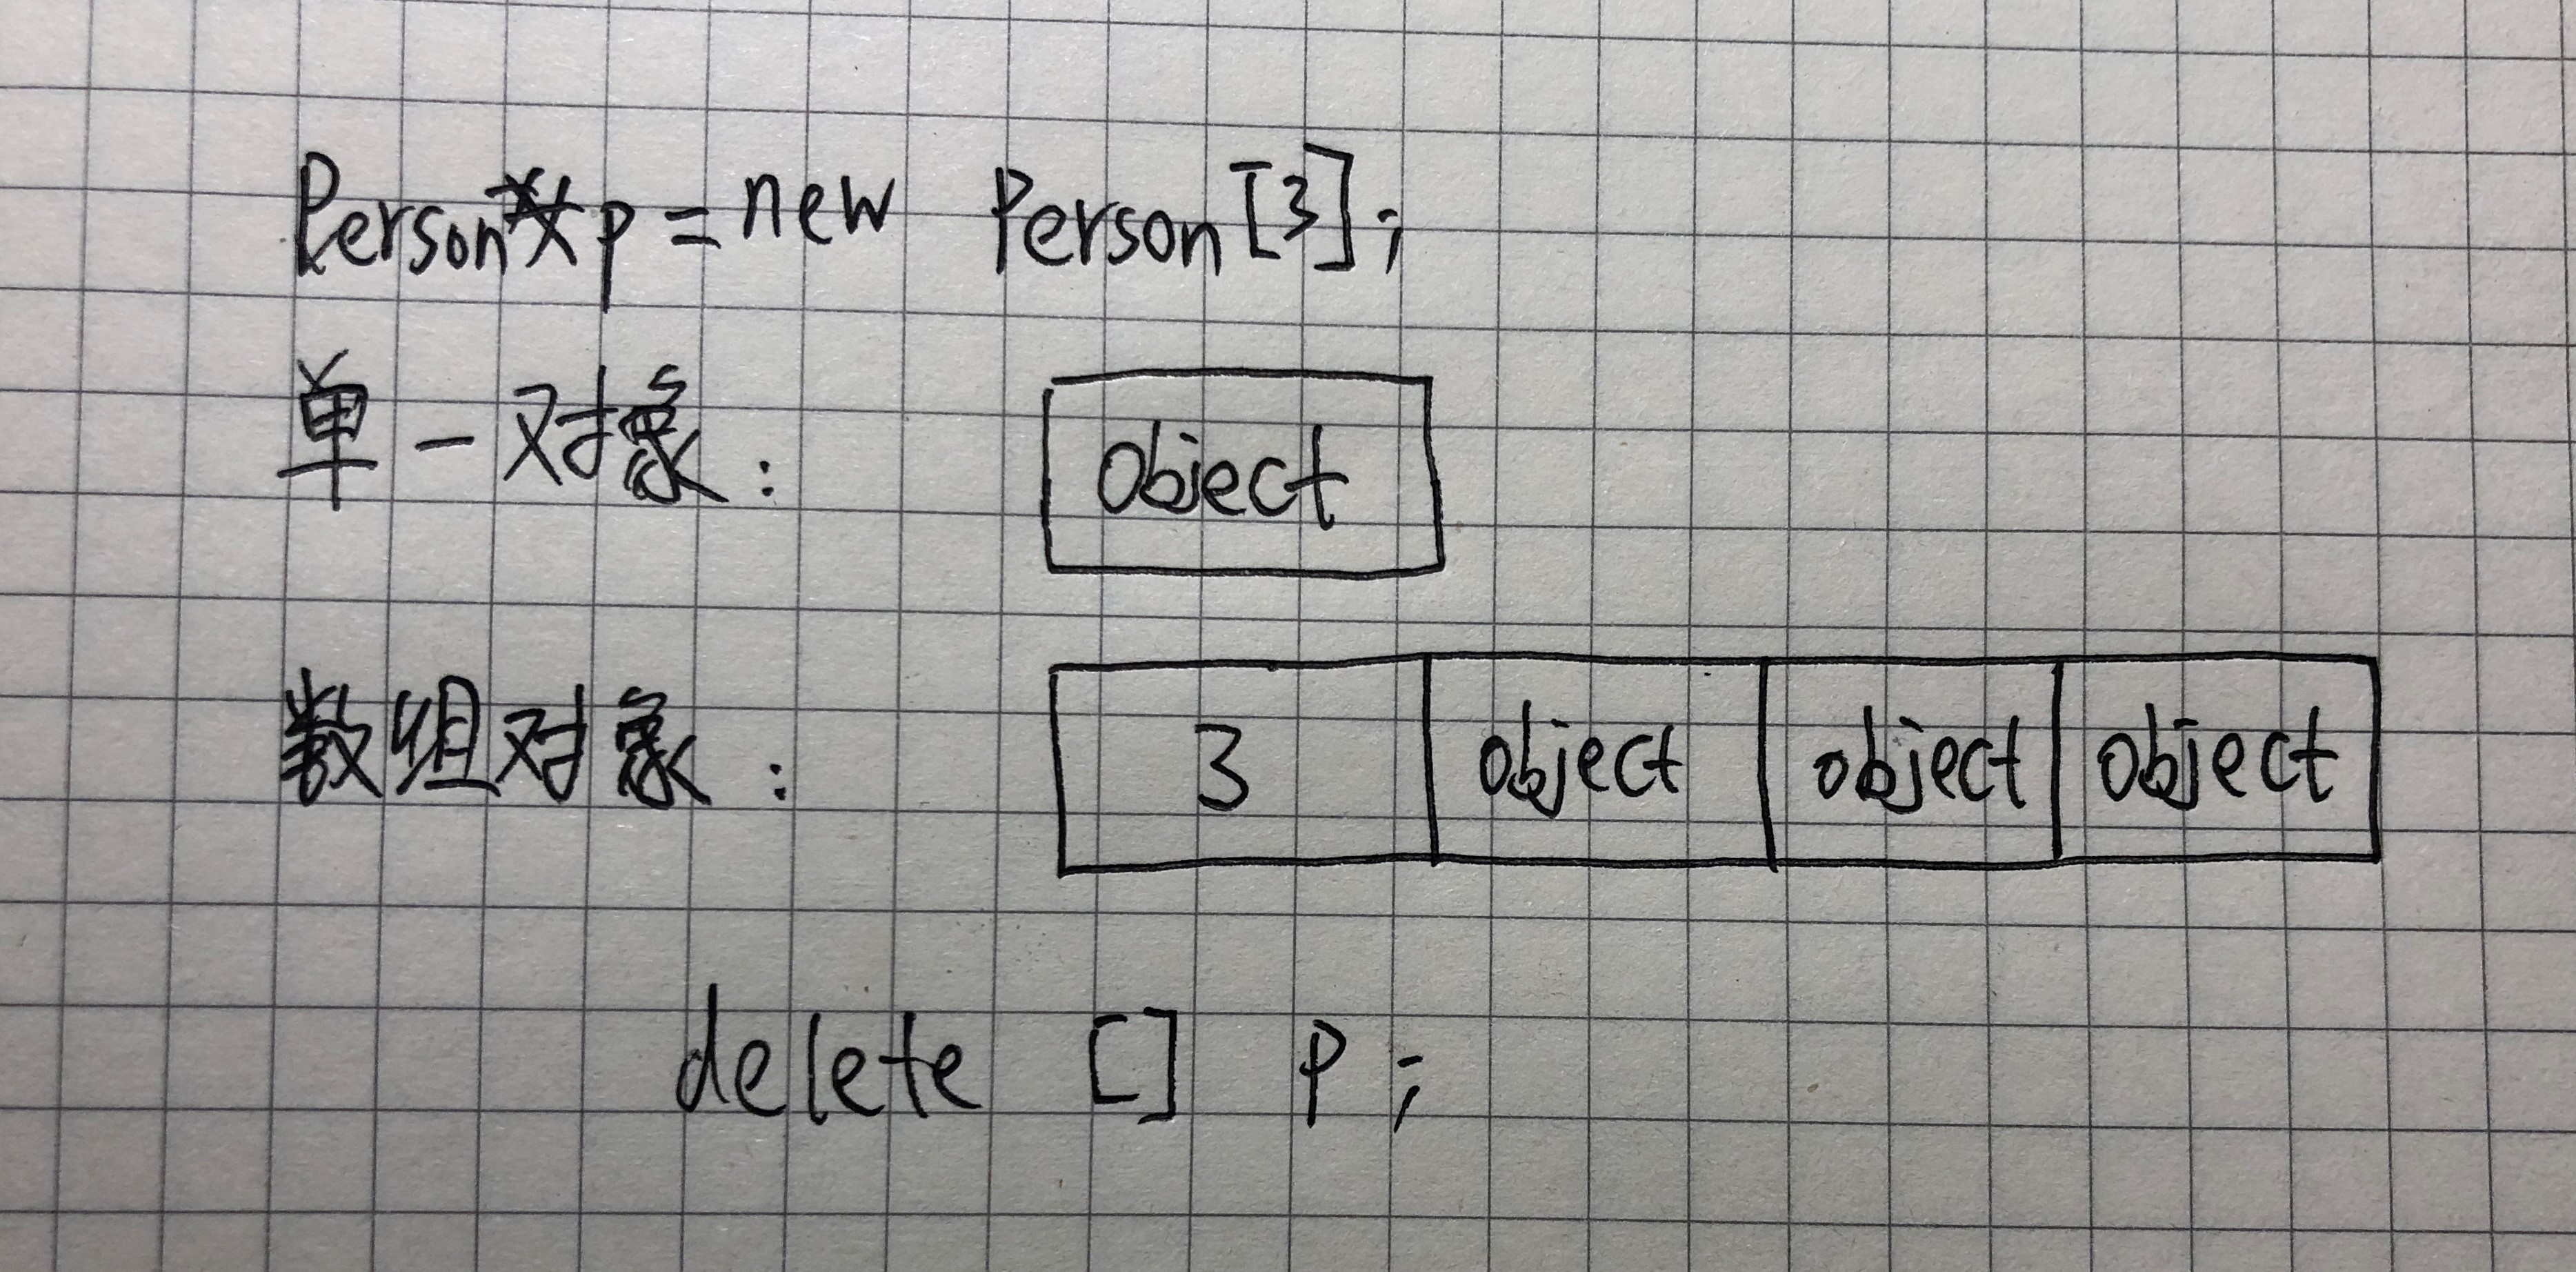 Person*p = new Person[3];
单一对象: object
数组对象: 3 object object object
delete [] p;